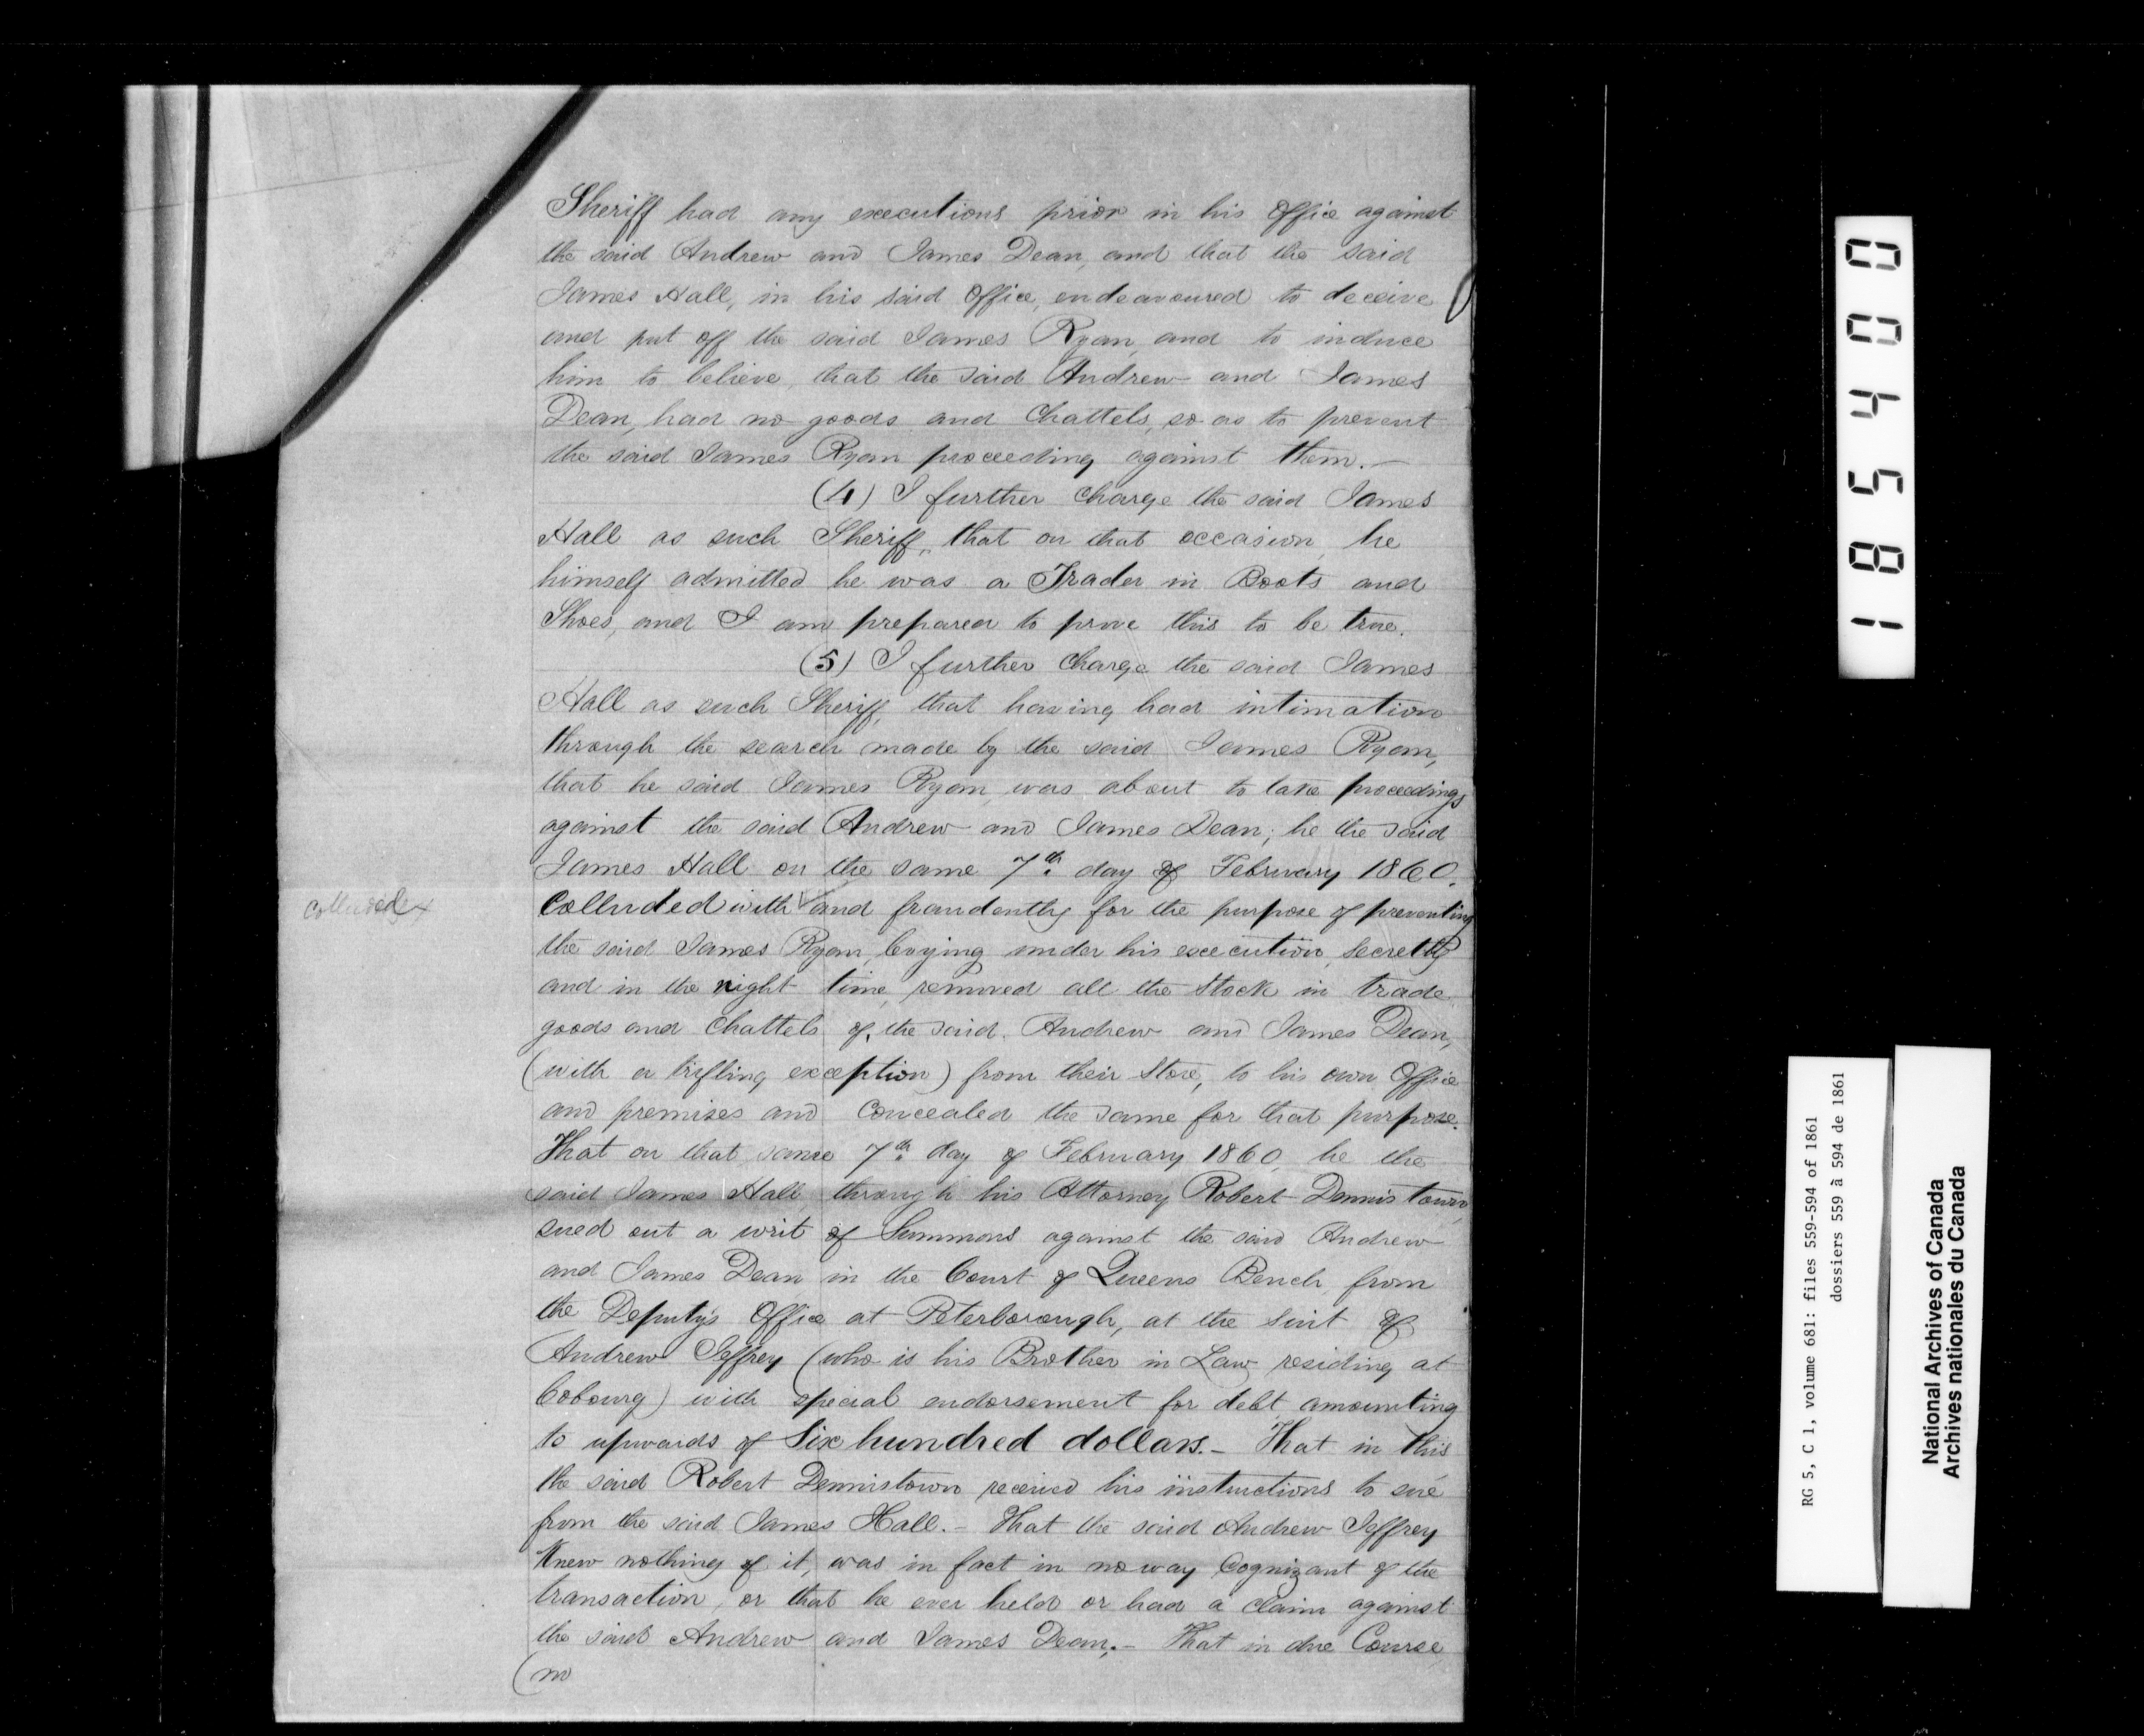 Sheriff had any executions prior in his Office against
the said Andrew and James Dean, and that the said
James Hall, in his said Office, endeavoured to deceive
and put off the said James Ryan, and to induce
him to believe, that the said Andrew and James
Dean, had no goods and Chattels, so as to prevent
the said James Ryan proceeding against them.—
(4) I further charge the said James
Hall as such Sheriff, that on that occasion, he
himself admitted he was a Trader in Boots and
Shoes, and I am prepared to prove this to be true.
(5) I further charge the said James
Hall as such Sheriff, that having had intimation
through the search made by the said James Ryan,
that he said James Ryan, was about to take proceedings
against the said Andrew and James Dean; he the said
James Hall on the same 7th day of February 1860.
colluded x
Colluded with and fraudently for the purpose of preventing
the said James Ryan, levying under his excecution, secretly
and in the night time, removed all the Stock in trade
goods and Chattels of the said. Andrew and James Dean,
(with a trifling exception) from their Store, to his own Office
and premises and concealed the same for that purpose.
That on that same 7th day of February 1860, he the
said James Hall through his Attorney Robert Dennistown,
sued out a writ of Summons against the said Andrew
and James Dean in the Court of Queens Bench, from
the Deputy's Office at Peterborough, at the suit of
Andrew Jeffrey (who is his Brother in Law residing at
Cobourg) with special endorsement for debt amounting
to upwards of Six hundred dollars.— That in this
the said Robert Dennistown received his instructions to sue
from the said James Hall.— That the said Andrew Jeffrey
Knew nothing of it, was in fact in no way Cognizant of the
transaction, or that he ever held or had a claim against
the said Andrew and James Dean.— That in due Course,
(no
185400
RG 5, C 1, volume 681: files 559-594 of 1861
dossiers 559 à 594 de 1861
National Archives of Canada
Archives nationales du Canada